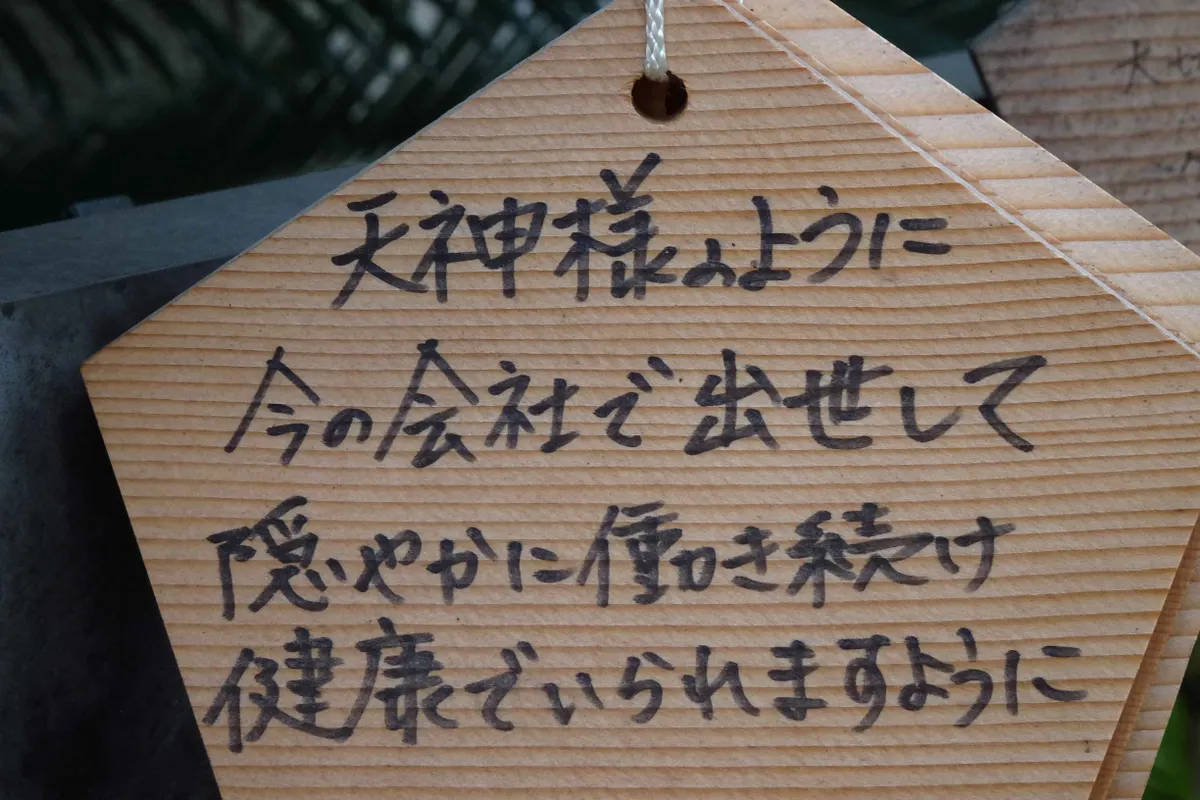 天神様のように
今の会社で出世して
穏やかに働き続け
健康でいられますように